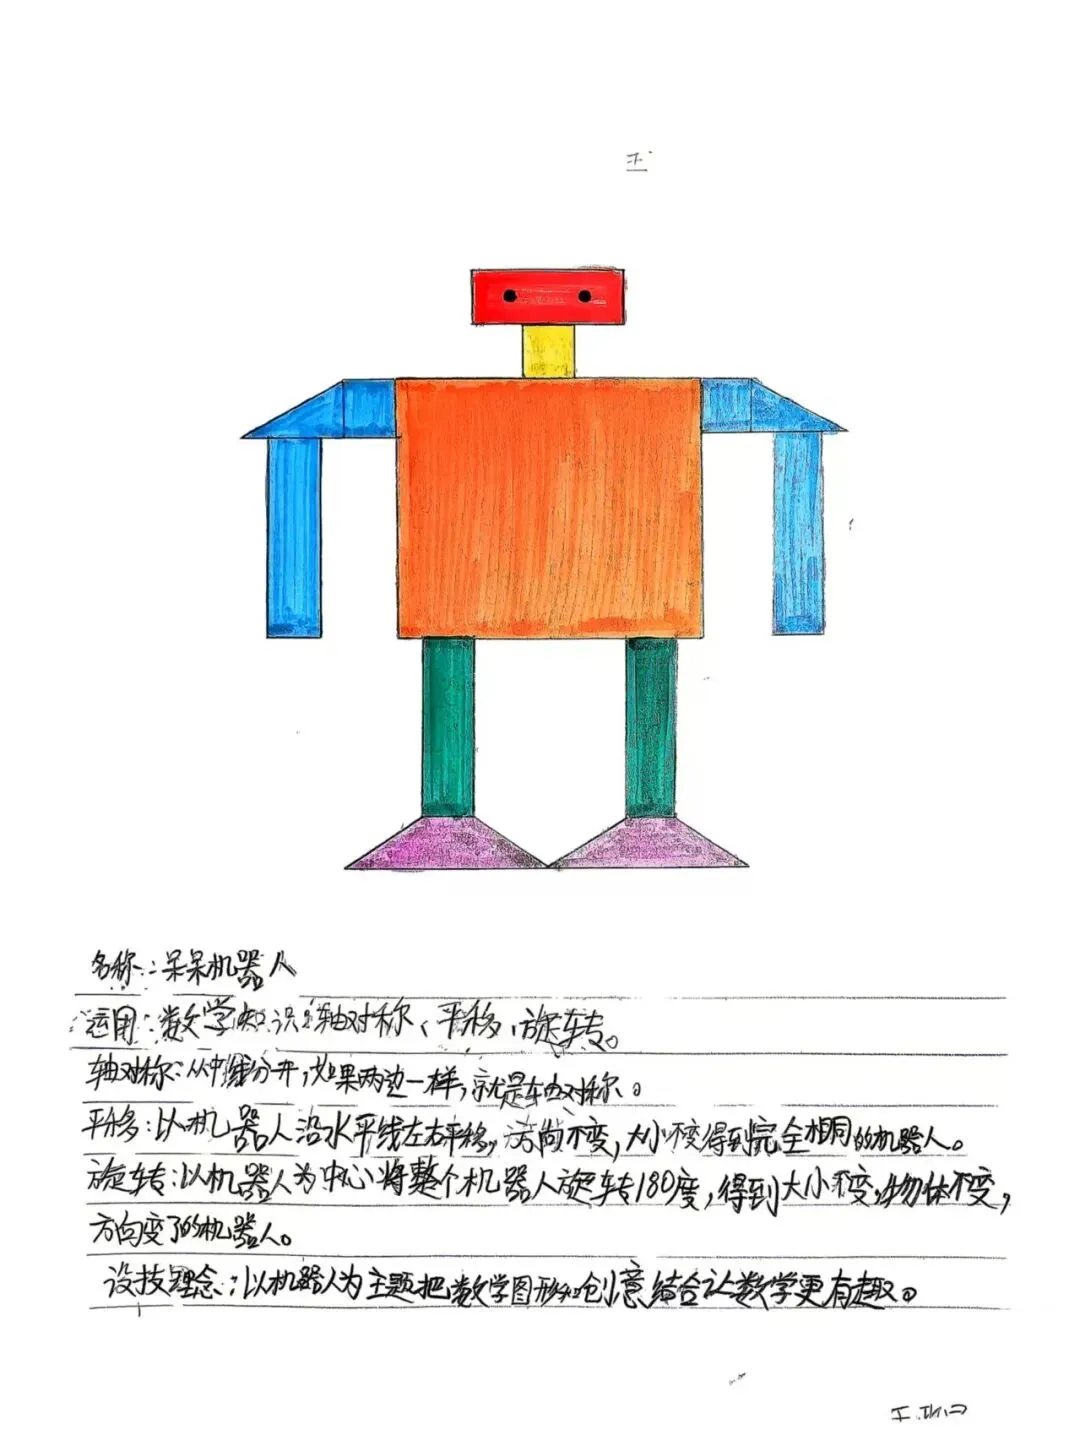 名称：呆呆机器人
运用：数学知识：轴对称、平移，旋转。
轴对称：从中间分开，如果两边一样，就是轴对称。
平移：以机器人沿水平线左右平移，方向不变，大小不变得到完全相同的机器人。
旋转：以机器人为中心将整个机器人旋转180度，得到大小不变，物体不变，
方向变了的机器人。
设技理念：以机器人为主题把数学图形和创意结合让数学更有趣。